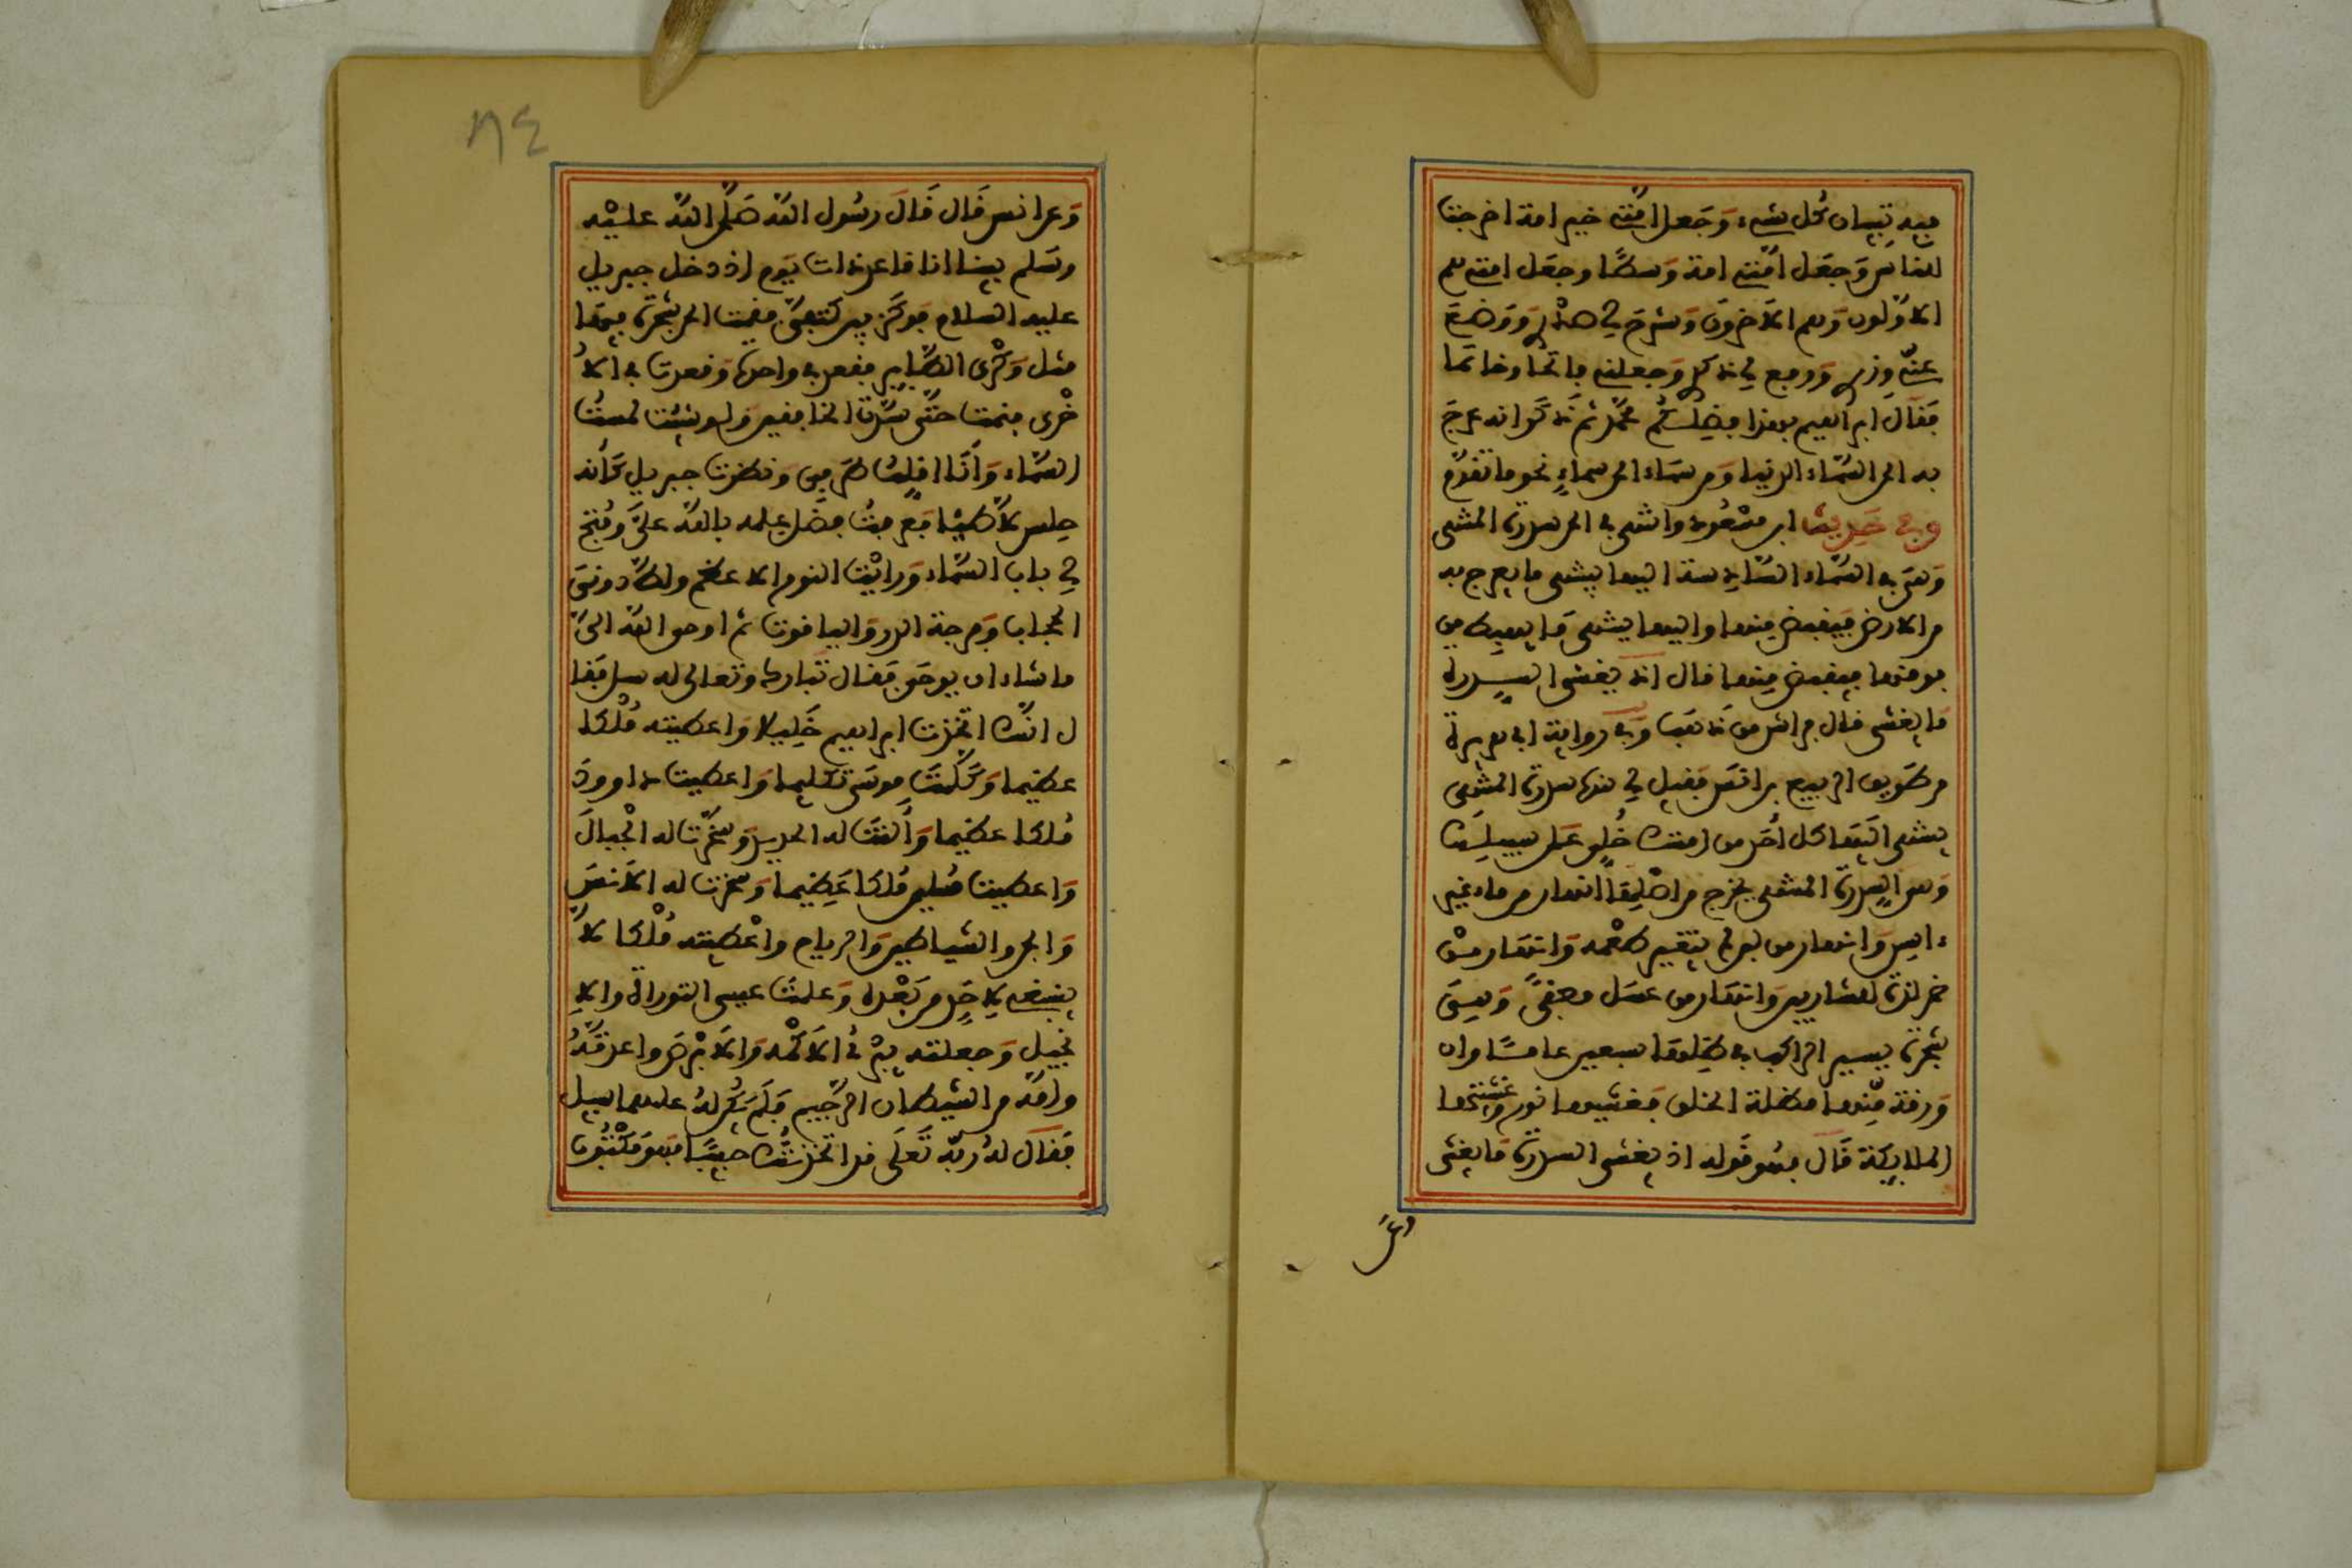 فيه تبيان كل شيء وَجَعل امّتي خير امة اخرجت
للناس وَجعَل امّتي امة وَسطًا وجعَل امتي هم
الاوّلون وَهم الاخرون وَشرح لي صدري وَوَضعَ
عنّي وِزري وَرفع لي ذكري وَجعلني فاتحًا وخاتما
فَقال ابراهيم بهذا فضلكُم محمّد ثم ذَكَر انه عرج
به الى السّماء الدنيا وَمن سَماء الى سماءٍ نحو ما تقدّم
وفي حَديث ابن مسْعُود وانتهى بي الى سدرة المنتهى
وَهيَ في السّماء السّادِسة اليها ينتهى ما يعرج به
من الارض فيَقبض مِنها واليها ينتهى مَا يهبط من
فوقها فيقبض مِنها قال اذ يغشى السِدرة
مَا يغشى قال فراش من ذَهَب وَفي رواية ابي هريرة
من طَريق الربيع بن انَس فقيل لي هذه سدرة المنتهى
ينتهى اليَها كل أحَد من امتك خلى عَلى سبيلِك
وَهي السِدرة المنتهى يخرج من اصْلِهَا انهار من ماء غير
ءاسِن وَانهار من لبن لم يتغير طعْمه وَانهَار مِنْ
خمر لذة للشاربين وَانهَار من عسَل مصفىً وَهيَ
شجرة يسير الراكب في ظِلهَا سبعين عامًا وان
وَرقة مِّنها مظلة الخلق فَغشيها نور وَغشيتها
الملايكة قَالَ فهُو قَوله اذ يغشى السدرة مَا يغشى
وَعَن
٨٤
وَعن انس قَال قَالَ رسُول الله صَلّى الله عليْه
وسَلم بينا انا قاعد ذات يَوم اذ دخل جبريل
عليه السلام فوكَز بين كتفيّ فقمت الى شجرة فيهَا
مثل وَكْرَى الطّاير فقعد في واحدة وَقعدت في الاُ
خْرى فنمت حتّى سَدّت الخافقين وَلو شئِت لمسسْت
السّماء وَأنَا اقلِب طَرفي وَنظرت جبريل كَأنه
حِلس لَاطيًا فعَرفتُ فضل عِلمه بالله عليَّ وفُتح
لي باب السّماء وَرايْت النور الاعظم ولطّ دونيَ
الحجاب وَفرجة الدر وَالياقوت ثم اوحى الله اليّ
ما شاء ان يوحىَ فقال تَبارك وتعالى له سل فَقا
ل انّك اتخذت ابراهيم خَلِيلا وَاعطيته مُلْكا
عظيما وَكَلمتَ موسَى تَكليما وَاعطيت داوودَ
مُلكا عظيما وَألنتَ له الحديد وَسَخّرت له الْجبالَ
وَاعطيت سُليمن مُلكا عَظِيما وَسَخرت له الاَنسَ
وَالجن والشياطين وَالرياح وأعْطيته مُلْكا لاَ
ينبغى لاِحَدٍ من بَعْده وَعلمتَ عيسى التوراة والاِ
نجيل وَجعلته يبْرئ الاَكْمه وَالاَبْرَص واعذتَهُ
وامّه من الشيطان الرّجيم فَلَمَ يَكُن لهُ عليهما سبيل
فَقالَ لهُ ربّه تَعَلَى قد اتخذتك حبيبًا فهوَ مَكْتُوب